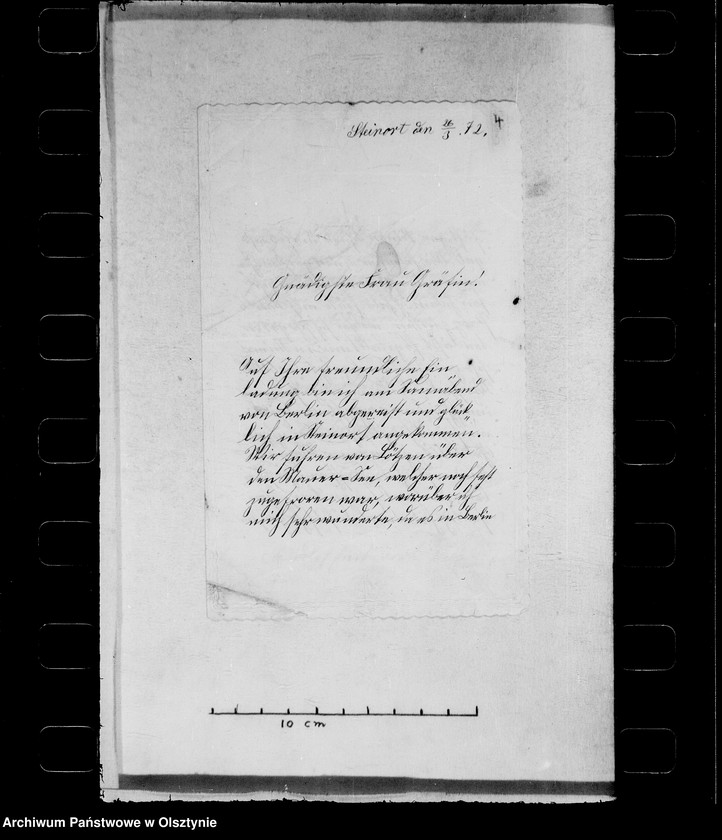 4
Steinort den 26/3. 72.
Gnädigste Frau Gräfin!
Auf Ihre freundliche Ein
ladung bin ich am Sonnabend
von Berlin abgereist und glück-
lich in Steinort angekommen.
Wir fuhren von Lötzen über
den Mauer=See, welcher noch fest
zugefroren war, worüber ich
mich sehr wunderte, da es in Berlin
10 cm
Archiwum Państwowe w Olsztynie